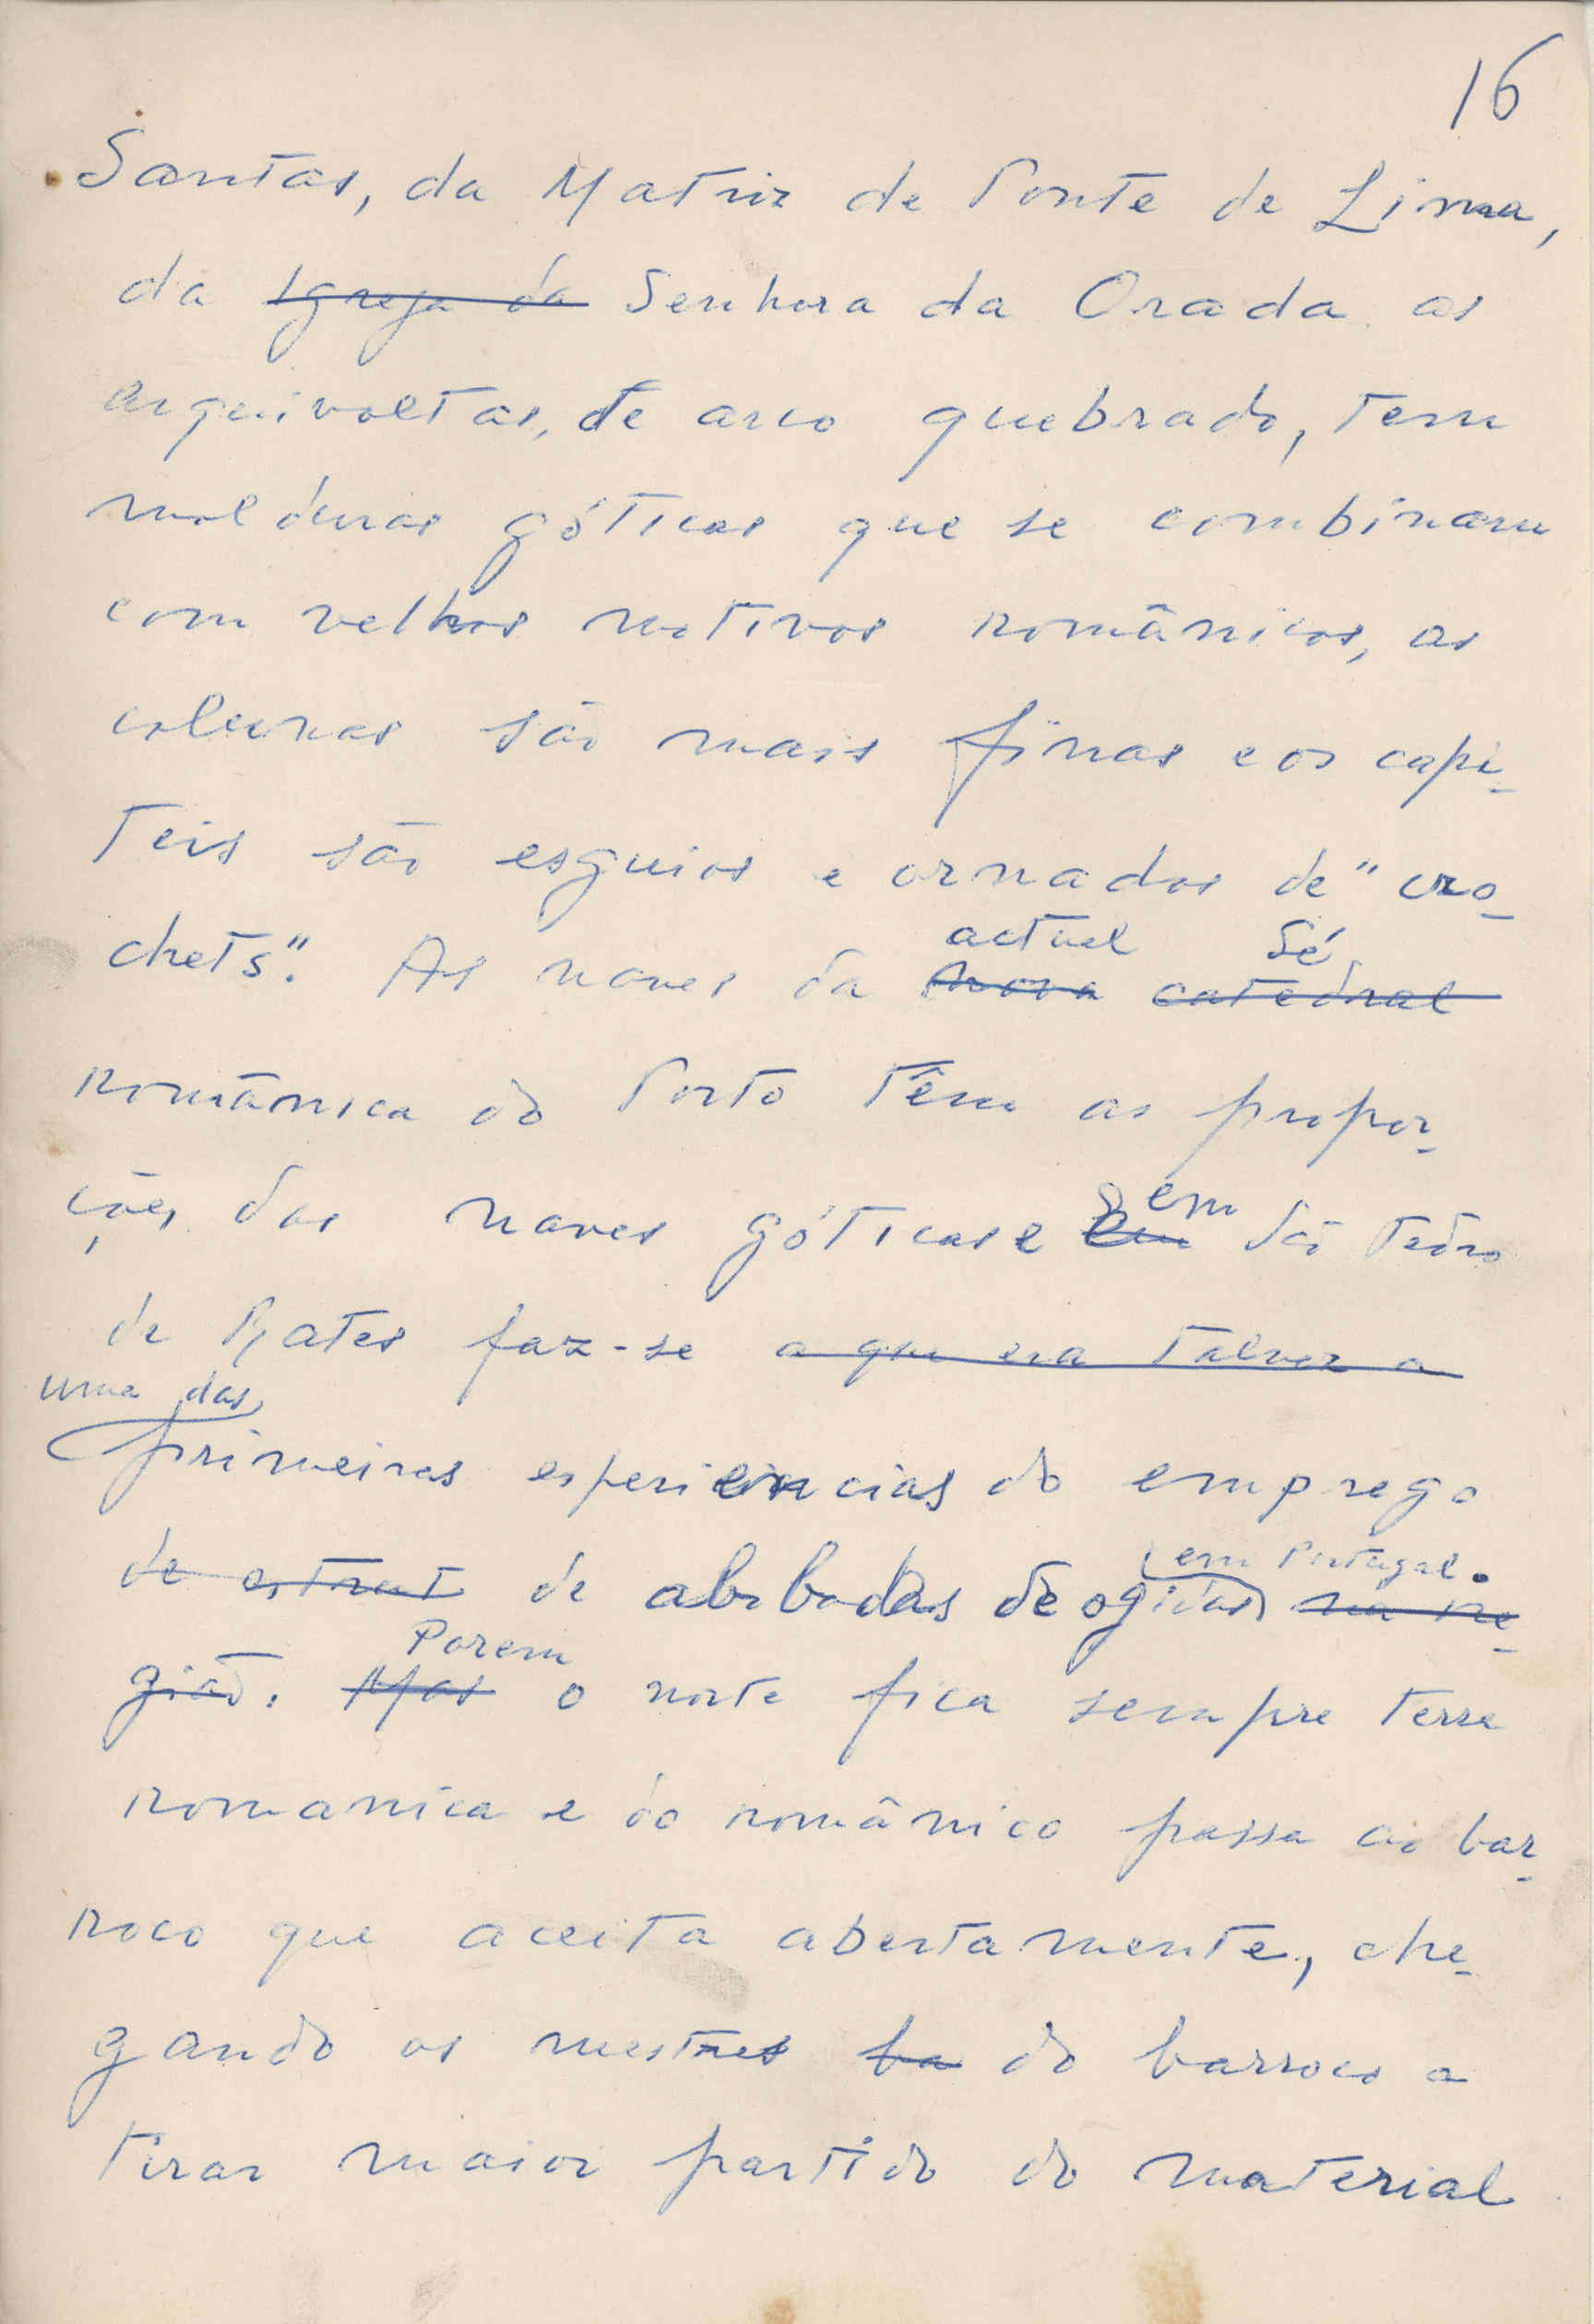 16
Santas, da Matriz de Ponte de Lima,
da Igreja da Senhora da Orada as
arquivoltas, de arco quebrado, tem
molduras góticas que se combinam
com velhos motivos românicos, as
colunas são mais finas e os capi-
teis são esguios e ornados de "cro-
actual Sé
chets". As naves da nova catedral
românica do Porto têm as propor-
ções das naves góticas e em em São Pedro
de Rates faz-se a que era talvez a
uma das
primeiras esperiencias do emprego
em Portugal.
de estrut de abobadas de ogivas na re-
Porem
gião. Mas o norte fica sempre terra
romanica e do românico passa ao bar-
roco que aceita abertamente, che-
gando os mestres ba do barroco a
tirar maior partido do material